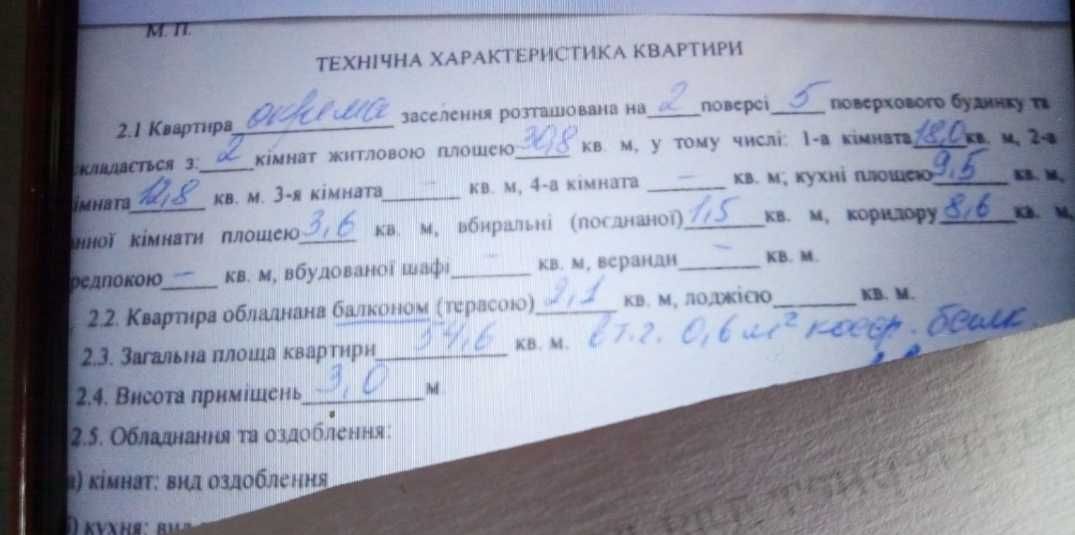 М. П.
ТЕХНІЧНА ХАРАКТЕРИСТИКА КВАРТИРИ
2.1 Квартира окрема заселення розташована на 2 поверсі 5 поверхового будинку та
складається з: 2 кімнат житловою площею 30,8 кв. м, у тому числі: 1-а кімната 18,0 кв. м, 2-а
імната 12,8 кв. м. 3-я кімната – кв. м, 4-а кімната – кв. м; кухні площею 9,5 кв. м,
нної кімнати площею 3,6 кв. м, вбиральні (поєднаної) 1,5 кв. м, коридору 8,6 кв. м,
редпокою – кв. м, вбудованої шафі – кв. м, веранди – кв. м.
2.2. Квартира обладнана балконом (терасою) 2,1 кв. м, лоджією кв. м.
2.3. Загальна площа квартири 54,6 кв. м. в т.г. 0,6 м² коеф. балк
2.4. Висота приміщень 3,0 м
2.5. Обладнання та оздоблення:
а) кімнат: вид оздоблення
) кухня: вид